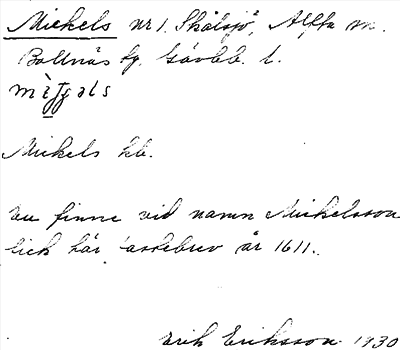 Mickels nr 1. Skålsjö, Alfta sn.
Bollnäs tg. Gävleb. l.
Mickels kb.
En finne vid namn Mickelsson
fick här fastebrev år 1611.
Erik Eriksson 1930